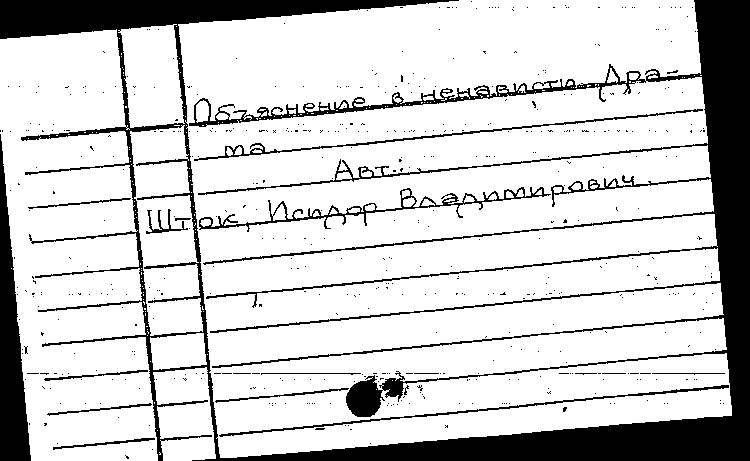 Объяснение в ненависти. Дра-
ма.
Авт.:
Шток, Исидор Владимирович.